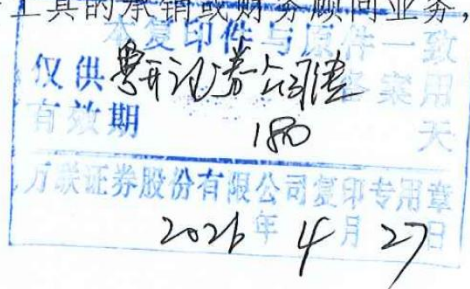 工具的承销或财务顾问业务，
本复印件与原件一致
仅供粤开证券公司债备案用
有效期 180 天
万联证券股份有限公司复印专用章
2026年4月27日